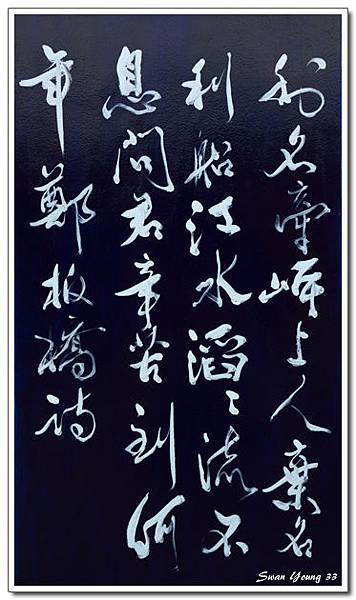 利名牽岸上人棄名
利船江水滔滔流不
息問君辛苦到何
年鄭板橋詩
Swan Young 33